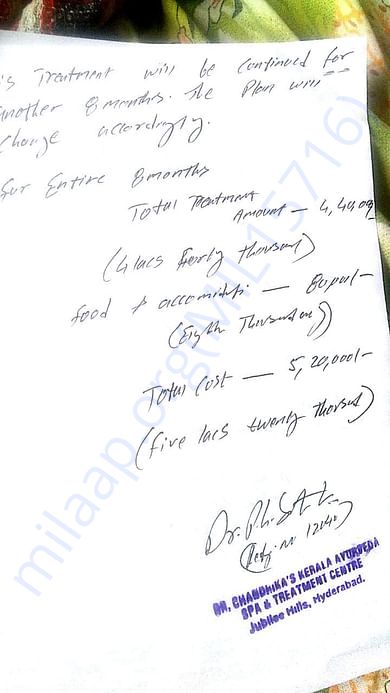 's Treatment will be continued for
another 8 months. The Plan will
change accordingly.
for Entire 8 months
Total Treatment
Amount — 4,40,00
(4 lacs Forty thousand)
food & accomidation —
(Eighty Thousand)
Total Cost — 5,20,000/-
(five lacs twenty thousand)
Dr. P.L.
DR. CHANDHIKA'S KERALA AYURVEDA
SPA & TREATMENT CENTRE
Jubilee Hills, Hyderabad.
milaap.org(MIL15716)